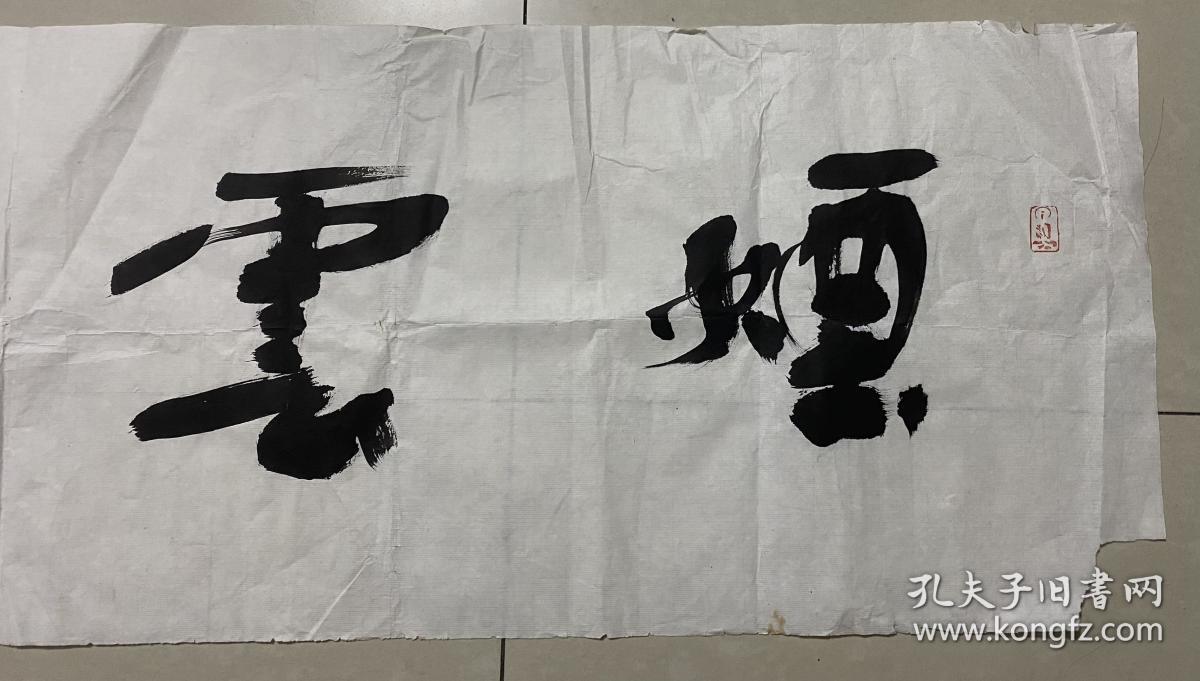 煙雲
孔夫子旧書网
www.kongfz.com